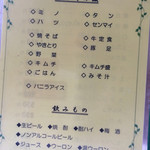 ◇ミノ ◇タン
◇ハツ ◇センマイ
◇焼そば ◇牛定食
◇やきとり ◇豚足
◇野菜
◇キムチ ◇キムチ盛
◇ごはん ◇みそ汁
◇バニラアイス
飲みもの
◆生ビール ◆焼酎 ◆酎ハイ ◆梅酒
◆ノンアルコールビール
◆ジュース ◆ウーロン